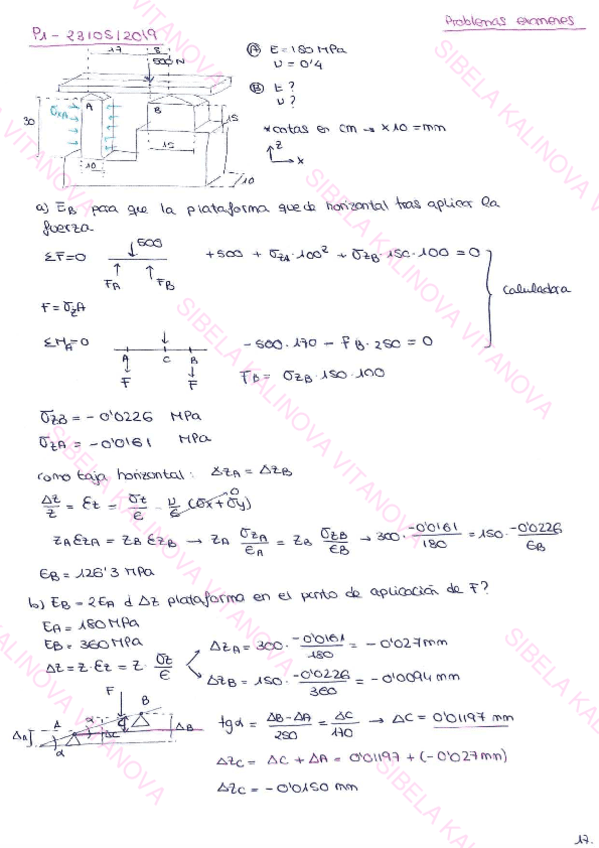 Problemas exámenes
P1 - 23/05/2019
17 8
500 N
A
B
σxA
30
15
15
10
10
Ⓐ E = 180 MPa
υ = 0'4
Ⓑ E ?
υ ?
*cotas en cm → x10 = mm
z
x
a) EB para que la plataforma quede horizontal tras aplicar la
fuerza.
ΣF=0
500
FA FB
+500 + σzA·100² + σzB·150·100 = 0
calculadora
F = σzA
ΣMA=0
A C B
F F
-500·170 - FB·250 = 0
FB = σzB·150·100
σZB = -0'0226 MPa
σZA = -0'0161 MPa
como baja horizontal: ΔzA = ΔzB
Δz/z = εz = σz/E - υ/E (σx+σy) 0
zA εzA = zB εzB → zA σzA/EA = zB σzB/EB → 300·-0'0161/180 = 150·-0'0226/EB
EB = 126'3 MPa
b) EB = 2EA d Δz plataforma en el punto de aplicación de F?
EA = 180 MPa
EB = 360 MPa
Δz = z·εz = z·σz/E
ΔzA = 300·-0'0161/180 = -0'027 mm
ΔzB = 150·-0'0226/360 = -0'0094 mm
F
B
A
α
ΔA
ΔC
ΔB
α
tgα = ΔB-ΔA/250 = ΔC/170 → ΔC = 0'01197 mm
ΔzC = ΔC + ΔA = 0'01197 + (-0'027mm)
ΔzC = -0'0150 mm
17.
SIBELA KALINOVA VITANOVA